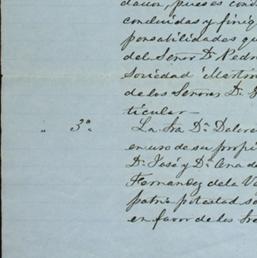 dador, pues es cond
concluidas y finiq
ponsabilidades qu
del Señor Dn Pedro
Sociedad "Martin
de los Señores D.
ticular —
" 3ª. La Sra Dª Dolore
en uso de su propi
Dn José y Dª Ana de
Fernandez de la Ve
patria potestad so
en favor de los Sre